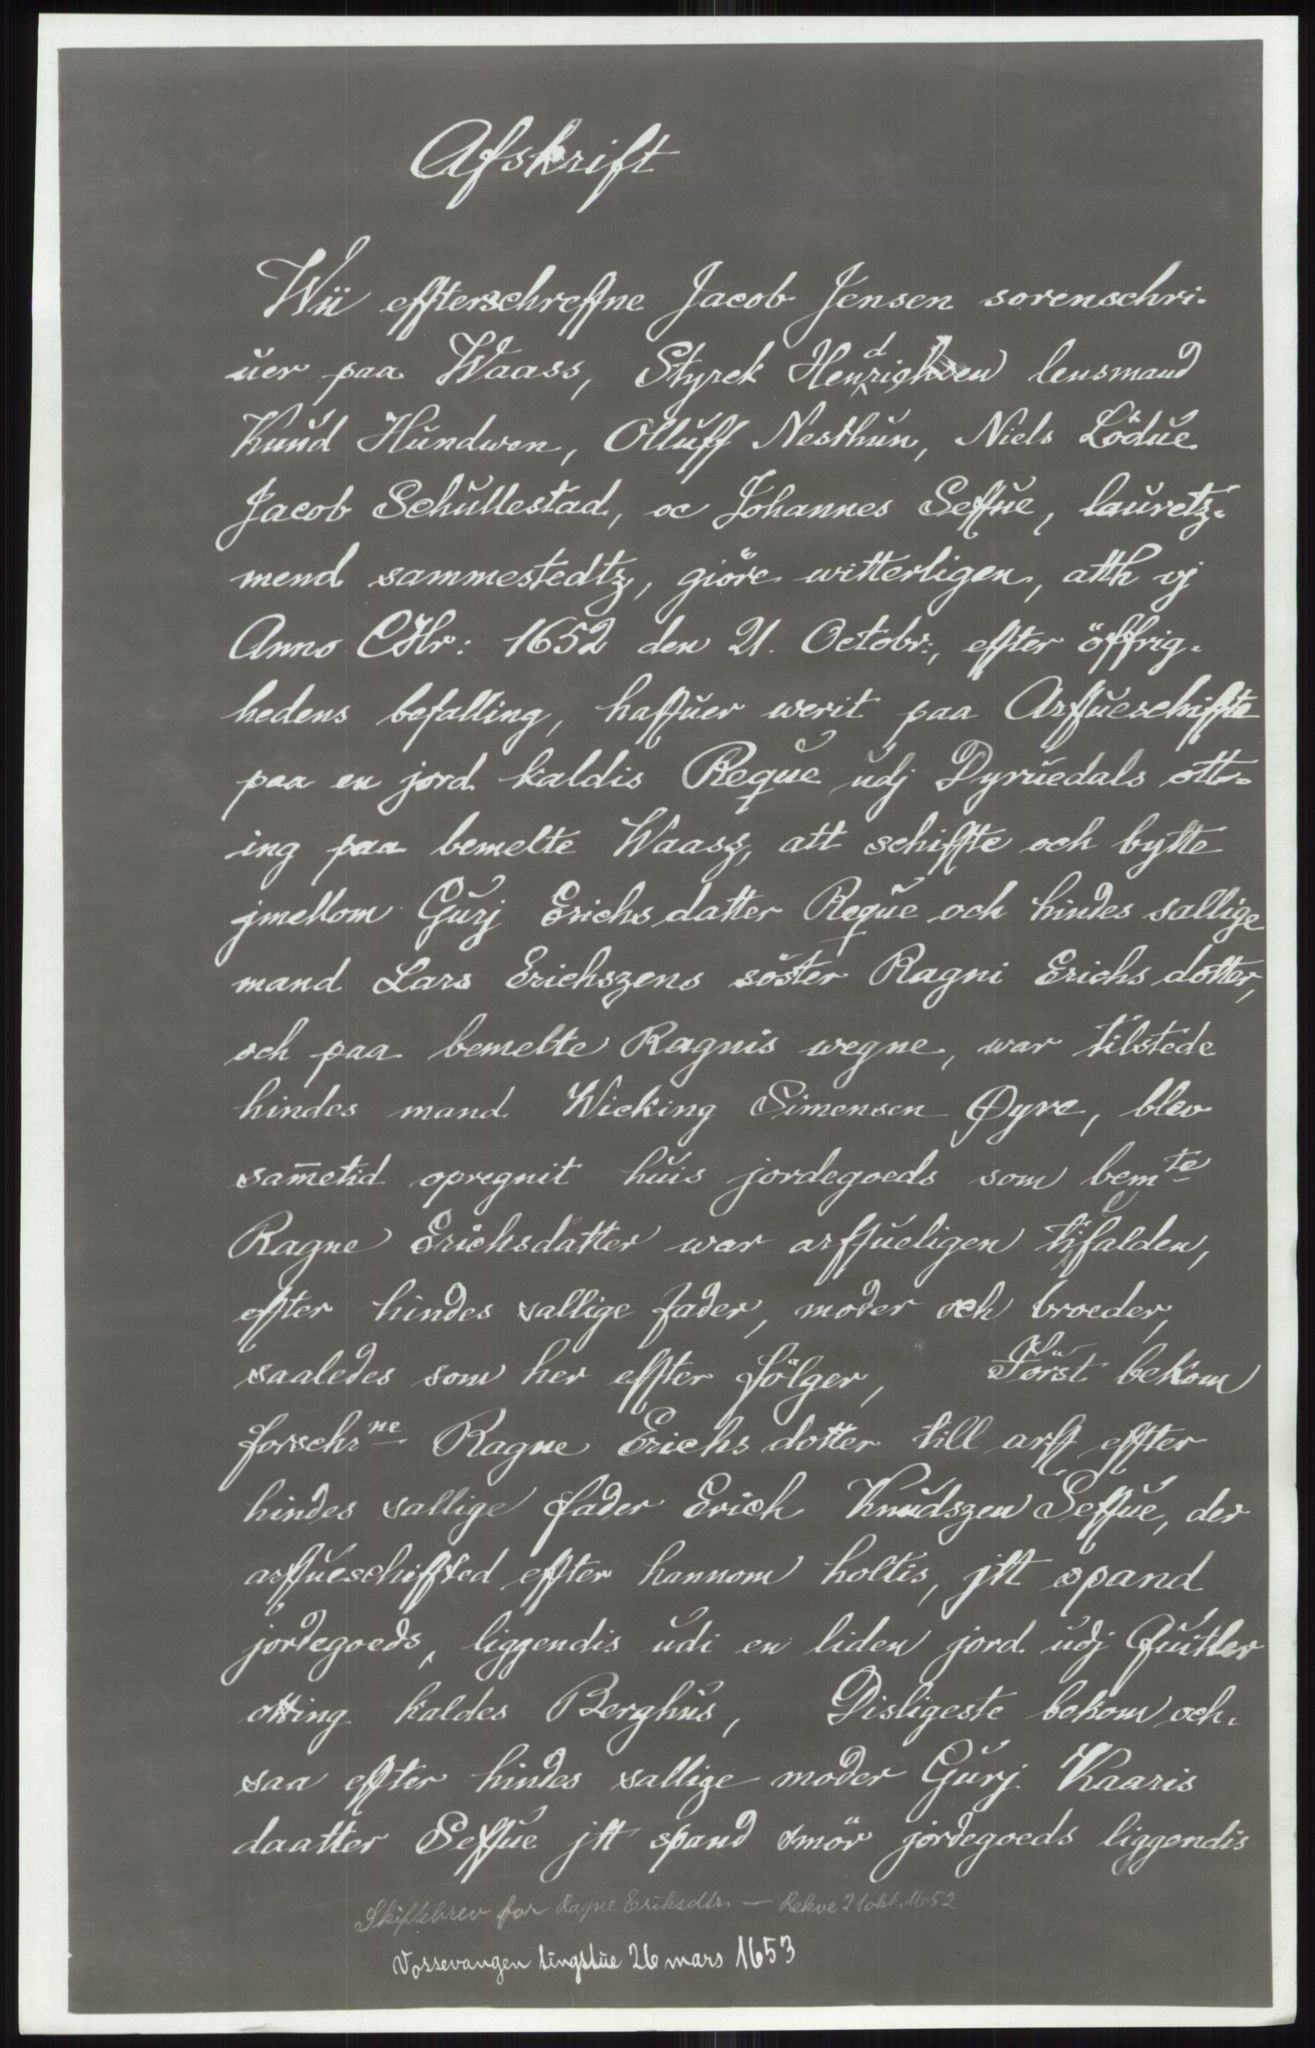 Afskrift
Wii effterschreffne Jacob Jensen sorenschri-
uer paa Waass, Styrck Hendrichsen lensmand
Knud Hundwen, Olluff Nesthun, Niels Lödue
Jacob Schullestad, oc Johannes Seffue, lauretz-
mend sammestedtz, giöre witterligen, atth vj
Anno CHr: 1652 den 21. Octobr:, effter öffrig-
hedens befalling, haffuer werit paa Arffueschiffte
paa en jord kaldis Reque udj Dyruedals ott-
ing paa bemelte Waasz, att schiffte och bytte
jmellom Gurj Erichs datter Reque och hindes sallige
mand Lars Erichszens söster Ragni Erichs dotter,
och paa bemelte Ragnis wegne, war tilstede
hindes mand Wicking Simensen Øyre, blev
sam̄etid opregnit huis jordegoeds som bemte
Ragne Erichsdatter war arffueligen tilfalden,
effter hindes sallige fader, moder och broeder,
saaledes som her effter fölger, Först bekom
forschrne Ragne Erichs dotter till arff effter
hindes sallige fader Erich Knudszen Seffue, der
arffueschifted effter hannom holtis, jtt spand
jordegoeds, liggendis udi en liden jord udj Quitler
otting kaldes Berghus, Disligeste bekom och-
saa effter hindes sallige moder Gurj Kaaris
daatter Seffue jtt spand smör jordegoeds liggendis
Skiftebrev for Ragne Eriksdtr. — Rekve 21 okt. 1652
Vossevangen tingstue 26 mars 1653